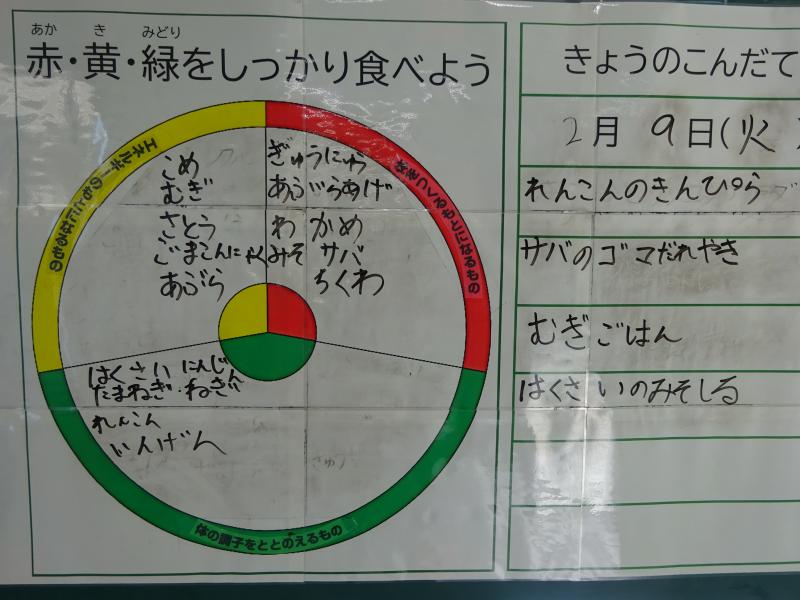 あか き みどり
赤・黄・緑をしっかり食べよう
エネルギーのもとになるもの
こめ
むぎ
さとう
ごまこんにゃく
あぶら
ぎゅうにゅう
あぶらあげ
わかめ
みそ サバ
ちくわ
はくさい にんじん
たまねぎ・ねぎ
れんこん
いんげん
体の調子をととのえるもの
きょうのこんだて
2月 9日(火)
れんこんのきんぴら
サバのゴマだれやき
むぎごはん
はくさいのみそしる